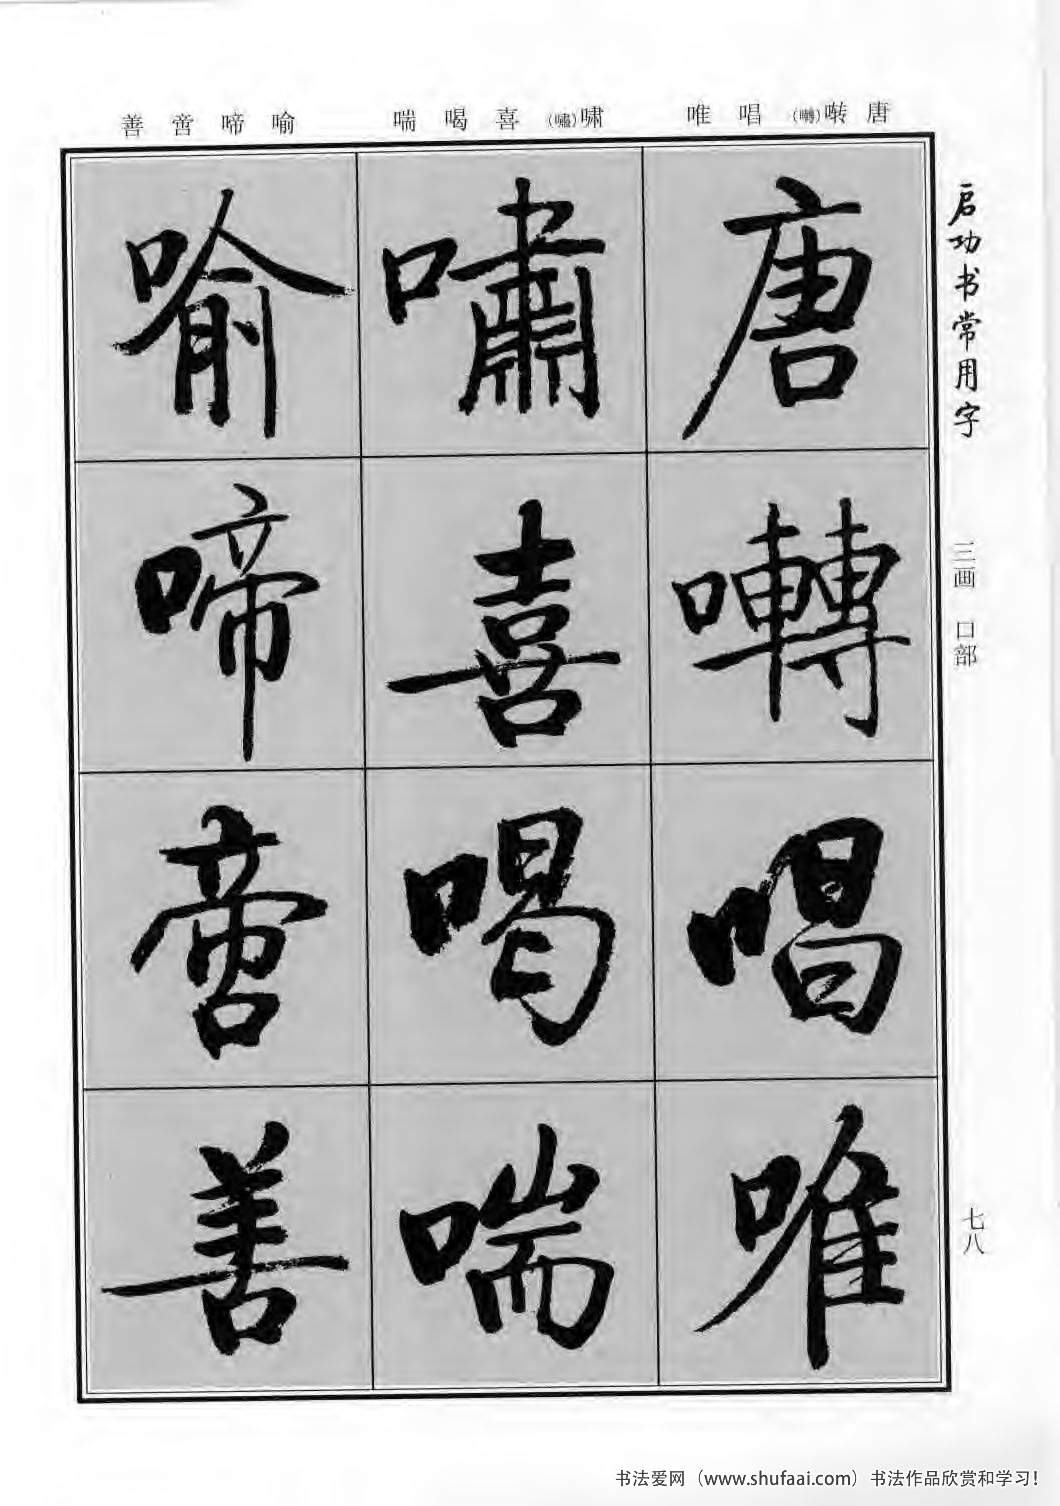 善 啻 啼 喻 喘 喝 喜 (嘯)啸 唯 唱 (囀)啭 唐
启功书常用字
三画 口部
七八
唐
囀
唱
唯
嘯
喜
喝
喘
喻
啼
啻
善
书法爱网（www.shufaai.com）书法作品欣赏和学习！